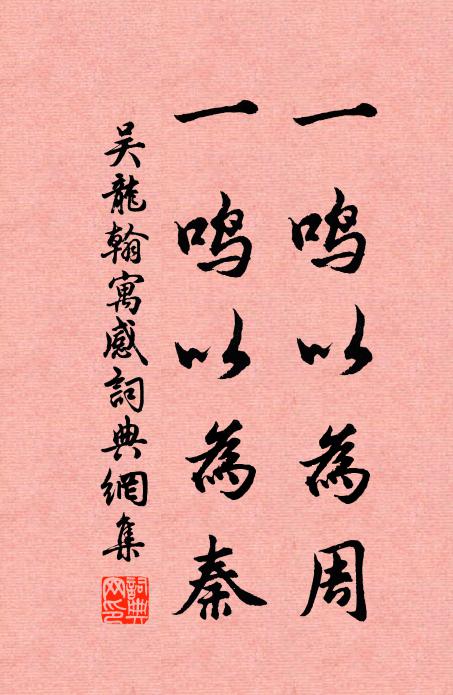 一鸣以為周
一鸣以為秦
吴龍翰寓感詞典網集
詞典
网印